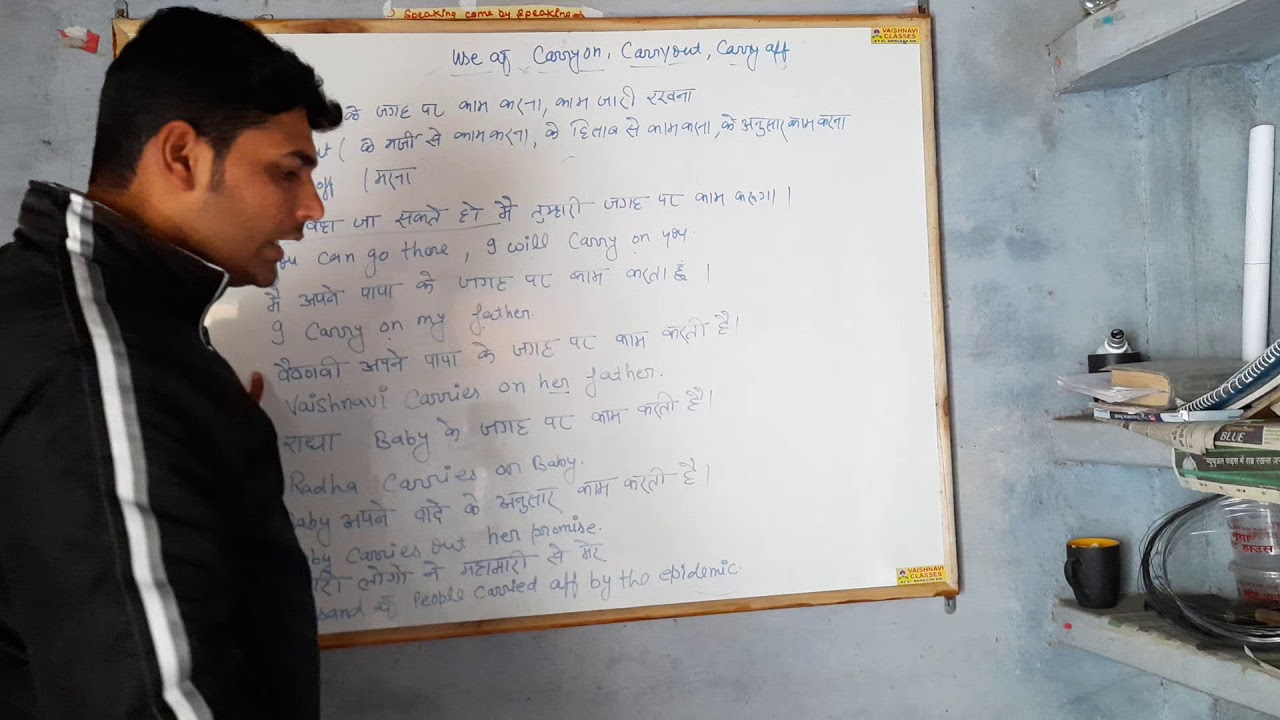 Speaking come by speaking
VAISHNAVI CLASSES
Use of Carry on, Carry out, Carry off
के जगह पर काम करना, काम जारी रखना
ut ( के मर्जी से काम करना, के हिसाब से काम करना, के अनुसार काम करना
off ( मरना
वहा जा सकते हो मै तुम्हारी जगह पर काम करूगा।
you can go there, I will Carry on you.
मै अपने पापा के जगह पर काम करता हूं।
I Carry on my father.
वैष्णवी अपने पापा के जगह पर काम करती है।
Vaishnavi Carries on her father.
राधा Baby के जगह पर काम करती है।
Radha Carries on Baby.
Baby अपने वादे के अनुसार काम करती है।
by Carries out her promise.
लोगो ने महामारी से मरे
sand of People Carried off by the epidemic.
VAISHNAVI CLASSES
BLUE
म्युचुअल फंड्स में सब
हाउस